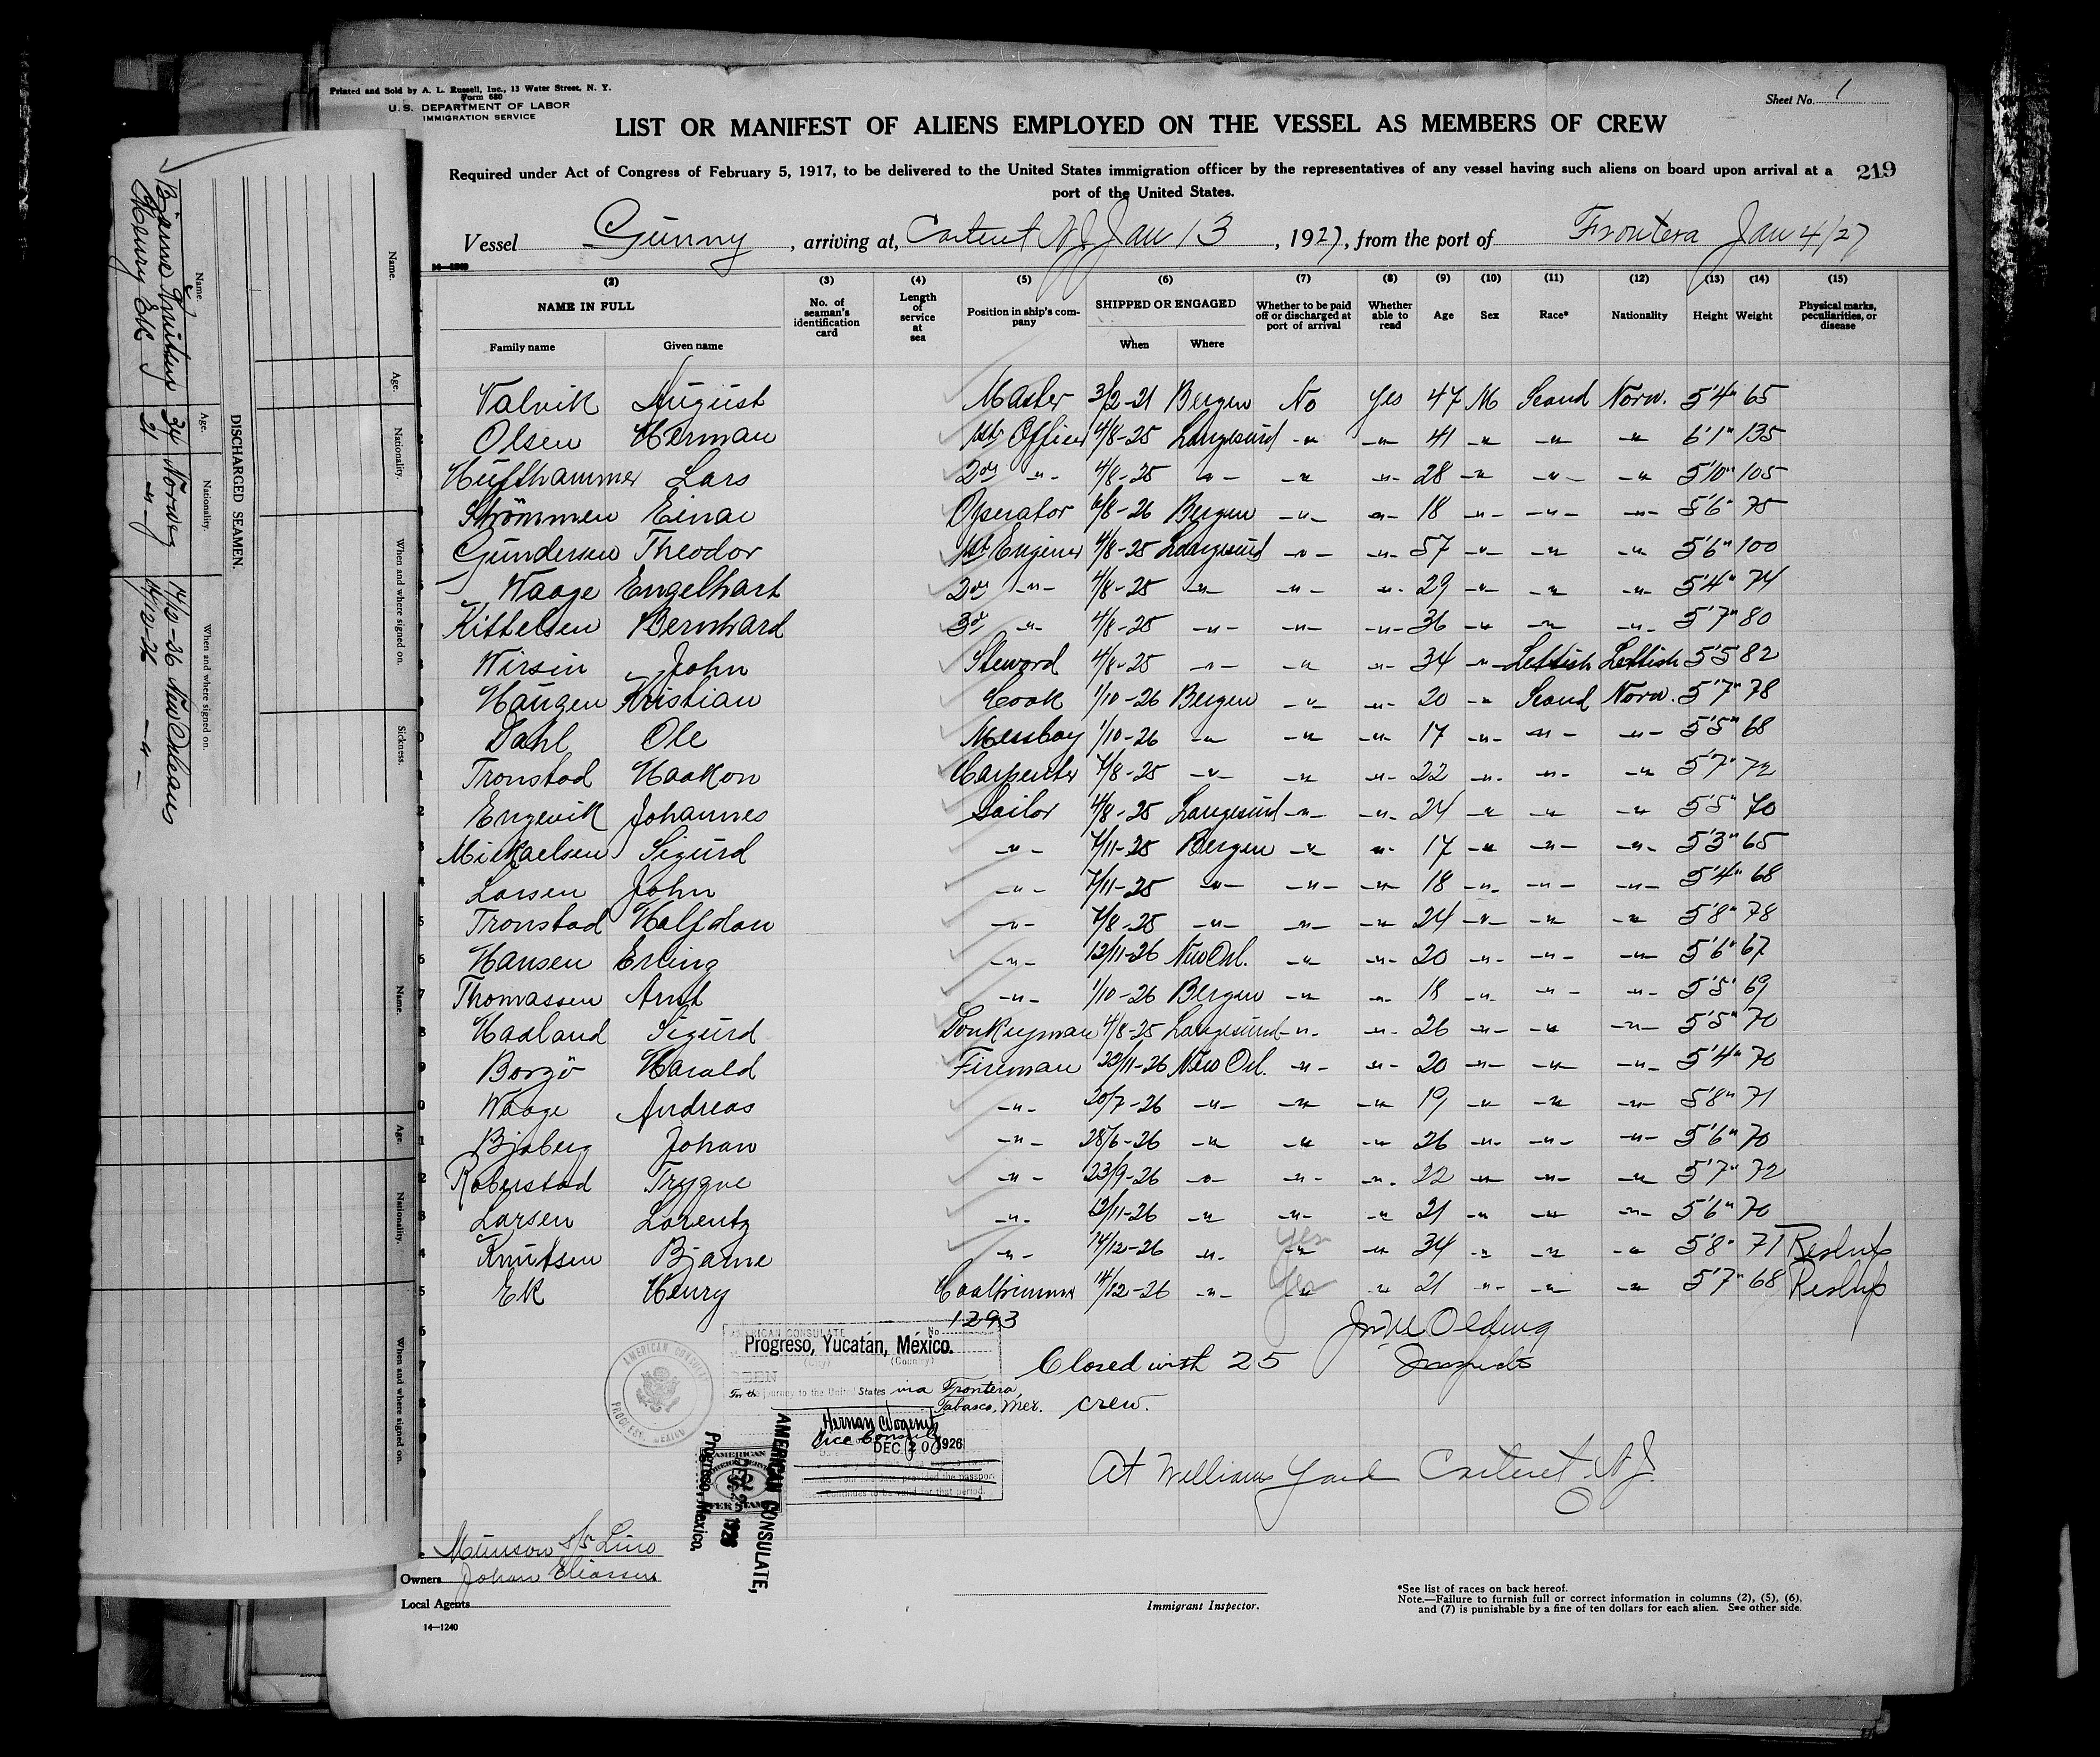 Printed and Sold by A. L. Russell, Inc., 13 Water Street, N. Y.
Form 680
U.S. DEPARTMENT OF LABOR
IMMIGRATION SERVICE
Sheet No. 1
LIST OR MANIFEST OF ALIENS EMPLOYED ON THE VESSEL AS MEMBERS OF CREW
Required under Act of Congress of February 5, 1917, to be delivered to the United States immigration officer by the representatives of any vessel having such aliens on board upon arrival at a
port of the United States.
219
Vessel Gunny, arriving at, Carteret NJ Jan 13, 1927, from the port of Frontera Jan 4/27
14—1240
(2) (3) (4) (5) (6) (7) (8) (9) (10) (11) (12) (13) (14) (15)
NAME IN FULL No. of seaman's identification card Length of service at sea Position in ship's company SHIPPED OR ENGAGED Whether to be paid off or discharged at port of arrival Whether able to read Age Sex Race* Nationality Height Weight Physical marks, peculiarities, or disease
Family name Given name When Where
Valvik August Master 3/2-21 Bergen No Yes 47 M Scand Norw. 5'4" 65
Olsen Herman 1st Officer 4/8-25 Langesund -"- -"- 41 -"- -"- -"- 6'1" 135
Hufthammer Lars 2nd -"- 4/8-25 -"- -"- -"- 28 -"- -"- -"- 5'10" 105
Strömmen Einar Operator 6/8-26 Bergen -"- -"- 18 -"- -"- -"- 5'6" 75
Gundersen Theodor 1st Enginer 4/8-25 Langesund -"- -"- 57 -"- -"- -"- 5'6" 100
Waage Engelhart 2nd -"- 4/8-25 -"- -"- -"- 29 -"- -"- -"- 5'4" 74
Kittelsen Bernhard 3d -"- 4/8-25 -"- -"- -"- 36 -"- -"- -"- 5'7" 80
Wirsin John Steward 4/8-25 -"- -"- -"- 34 -"- Lettish Lettish 5'5 82
Haugen Kristian Cook 1/10-26 Bergen -"- -"- 20 -"- Scand Norw. 5'7" 78
Dahl Ole Messboy 1/10-26 -"- -"- -"- 17 -"- -"- -"- 5'5" 68
Tronstad Haakon Carpenter 4/8-25 -"- -"- -"- 22 -"- -"- -"- 5'7" 72
Engevik Johannes Sailor 4/8-25 Langesund -"- -"- 24 -"- -"- -"- 5'5" 70
Mikkaelsen Sigurd -"- 7/11-25 Bergen -"- -"- 17 -"- -"- -"- 5'3" 65
Larsen John -"- 7/11-25 -"- -"- -"- 18 -"- -"- -"- 5'4" 68
Tronstad Halfdan -"- 4/8-25 -"- -"- -"- 24 -"- -"- -"- 5'8" 78
Hansen Erling -"- 12/11-26 New Orl. -"- -"- 20 -"- -"- -"- 5'6" 67
Thomassen Arnt -"- 1/10-26 Bergen -"- -"- 18 -"- -"- -"- 5'5" 69
Haaland Sigurd Donkeyman 4/8-25 Langesund -"- -"- 26 -"- -"- -"- 5'5" 70
Borgö Harald Fireman 22/11-26 New Orl. -"- -"- 20 -"- -"- -"- 5'4" 70
Waage Andreas -"- 20/7-26 -"- -"- -"- 19 -"- -"- -"- 5'8" 71
Bjoberg Johan -"- 28/6-26 -"- -"- -"- 26 -"- -"- -"- 5'6" 70
Roberstad Trygve -"- 23/9-26 -"- -"- -"- 22 -"- -"- -"- 5'7" 72
Larsen Lorentz -"- 12/11-26 -"- -"- -"- 21 -"- -"- -"- 5'6" 70
Knutsen Bjarne -"- 14/12-26 -"- Yes -"- 34 -"- -"- -"- 5'8" 71 Reship
Ek Henry Coaltrimmer 14/12-26 -"- Yes -"- 21 -"- -"- -"- 5'7" 68 Reship
1293
AMERICAN CONSULATE No
Progreso, Yucatán, México.
(City) (Country)
SEEN
For the journey to the United States via Frontera,
Tabasco, Mex.
Vice Consul
DEC 20 1926
AMERICAN CONSULATE
PROGRESO, MEXICO
AMERICAN CONSULATE,
Progreso, Mexico,
Closed with 25
crew.
At Williams Yard Carteret N.J.
Munson S/S Line
Owners Johan Eliassen
Local Agents
14—1240
Immigrant Inspector.
*See list of races on back hereof.
Note.—Failure to furnish full or correct information in columns (2), (5), (6),
and (7) is punishable by a fine of ten dollars for each alien. See other side.
DISCHARGED SEAMEN.
Name. Age. Nationality. When and where signed on.
Bjarne Knutsen 34 Norweg 14/12-26 New Orleans
Henry Ek 21 -"- 14/12-26 -"-
Name. Age. Nationality. When and where signed on. Sickness.
Name. Age. Nationality. When and where signed on.